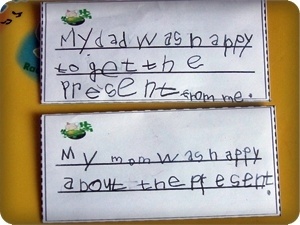 My dad was happy
to get the
present from me.
My mom was happy
about the present.